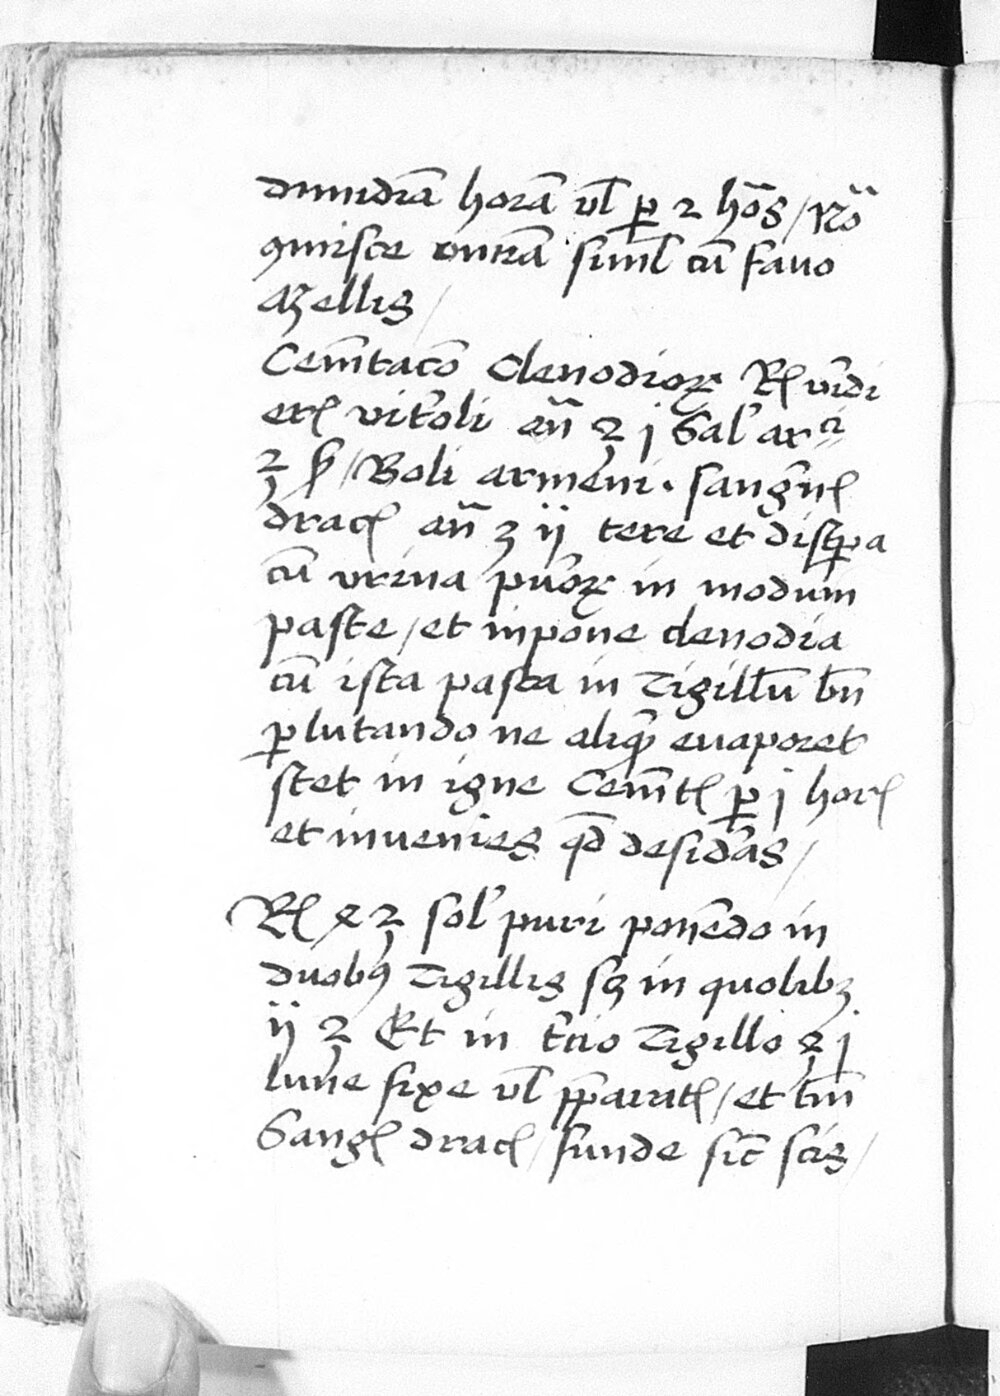 dimidiā horā vl̄ ꝑ 2 ho̅s / No̅
9misce ontrā siml̄ cū fauo
Mellis /
Cem̄taco̅ Clenodioꝝ Rſ vīdi
erſ vit'oli an̄ ℥ j Sal' arci
℥ ß / Boli armeni · sang'nſ
dracſ an̄ ʒ ij tere et distp̄a
cū vrina pu'oꝝ in modum
paste / et inpone clenodia
cū ista pasta in Tigillū bn̄
ꝑlutando ne aliqd̄ euaporet
stet in igne Cem̄tſ ꝑ j horſ
et invenies qd̄ desid'as /
Rſ 4 ℥ sol' puri ponēdo in
duobꝰ Tigillis sꝫ in quolibꝫ
ij ℥ Et in t'cio Tigillo ℥ j
lune fixe vl̄ pp̄aratſ / et tm̄
Sangſ dracſ / funde sic̄ scis /